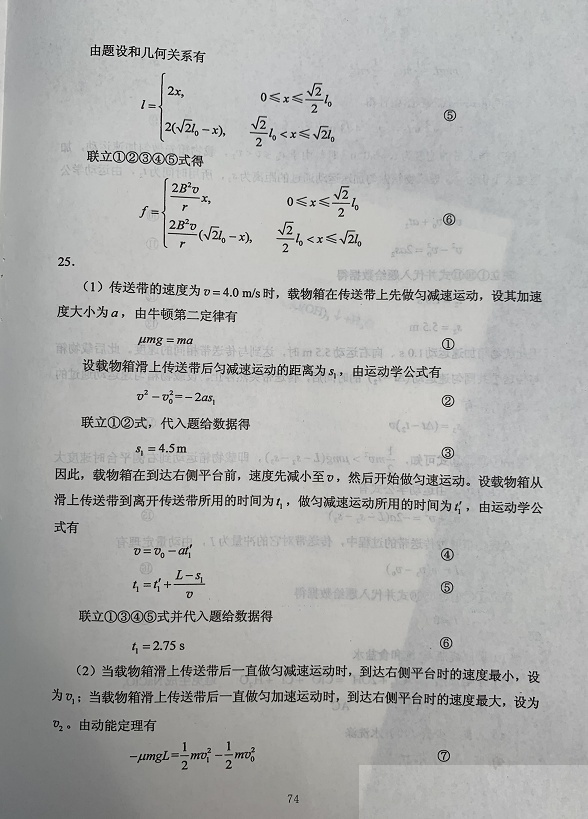 由题设和几何关系有
l = { 2x, 0≤x≤√2/2 l₀ ⑤
2(√2l₀−x), √2/2 l₀<x≤√2l₀
联立①②③④⑤式得
f = { 2B²v/r x, 0≤x≤√2/2 l₀ ⑥
2B²v/r (√2l₀−x), √2/2 l₀<x≤√2l₀
25.
（1）传送带的速度为 v=4.0 m/s 时，载物箱在传送带上先做匀减速运动，设其加速
度大小为 a，由牛顿第二定律有
μmg=ma ①
设载物箱滑上传送带后匀减速运动的距离为 s₁，由运动学公式有
v²−v₀²=−2as₁ ②
联立①②式，代入题给数据得
s₁=4.5m ③
因此，载物箱在到达右侧平台前，速度先减小至 v，然后开始做匀速运动。设载物箱从
滑上传送带到离开传送带所用的时间为 t₁，做匀减速运动所用的时间为 t₁′，由运动学公
式有
v=v₀−at₁′ ④
t₁=t₁′+(L−s₁)/v ⑤
联立①③④⑤式并代入题给数据得
t₁=2.75 s ⑥
（2）当载物箱滑上传送带后一直做匀减速运动时，到达右侧平台时的速度最小，设
为 v₁；当载物箱滑上传送带后一直做匀加速运动时，到达右侧平台时的速度最大，设为
v₂。由动能定理有
−μmgL=1/2 mv₁²−1/2 mv₀² ⑦
74